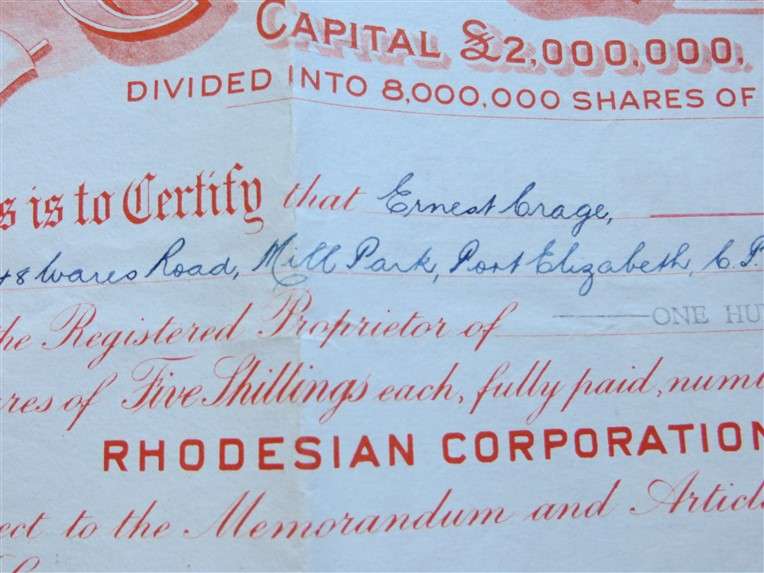 CAPITAL £2,000,000,
DIVIDED INTO 8,000,000 SHARES OF
s is to Certify that Ernest Crage,
48 Wares Road, Mill Park, Port Elizabeth, C.P.
he Registered Proprietor of ONE HU
res of Five Shillings each, fully paid, num
RHODESIAN CORPORATION
ect to the Memorandum and Article